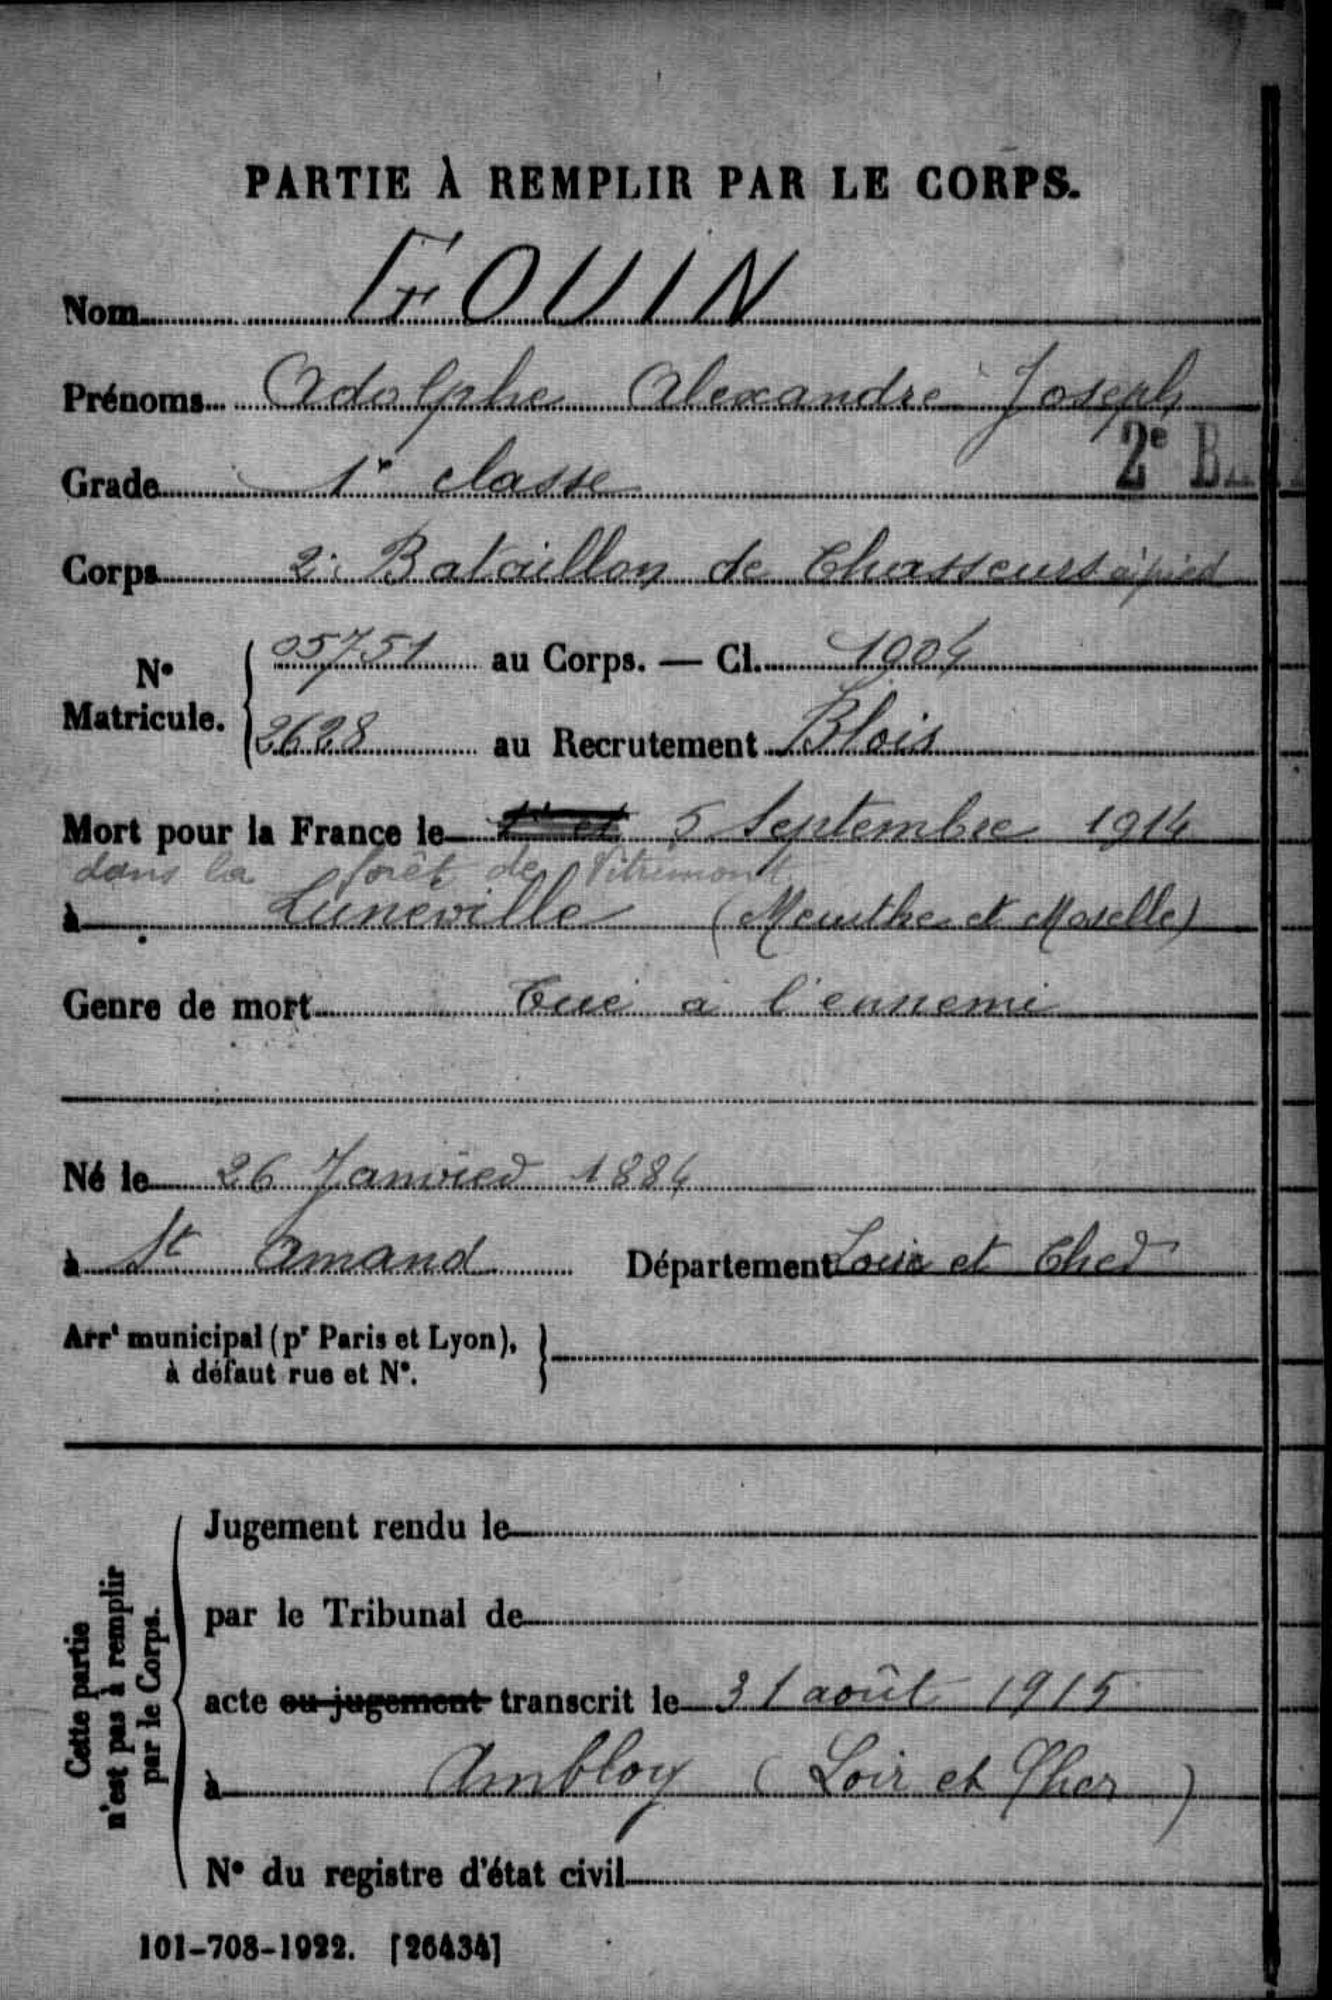 PARTIE À REMPLIR PAR LE CORPS.
Nom FOUIN
Prénoms Adolphe Alexandre Joseph
Grade 1e classe
2e BA
Corps 2e Bataillon de Chasseurs à pied
N° Matricule. 05751 au Corps. — Cl. 1904
2628 au Recrutement Blois
Mort pour la France le 5 Septembre 1914
dans la forêt de Vitrimont
à Lunéville (Meurthe et Moselle)
Genre de mort Tué à l'ennemi
Né le 26 Janvier 1884
à St Amand Département Loir et Cher
Arrt municipal (pr Paris et Lyon),
à défaut rue et N°.
Cette partie n'est pas à remplir par le Corps.
Jugement rendu le
par le Tribunal de
acte ou jugement transcrit le 31 août 1915
à Ambloy (Loir et Cher)
N° du registre d'état civil
101-708-1922. [26434]